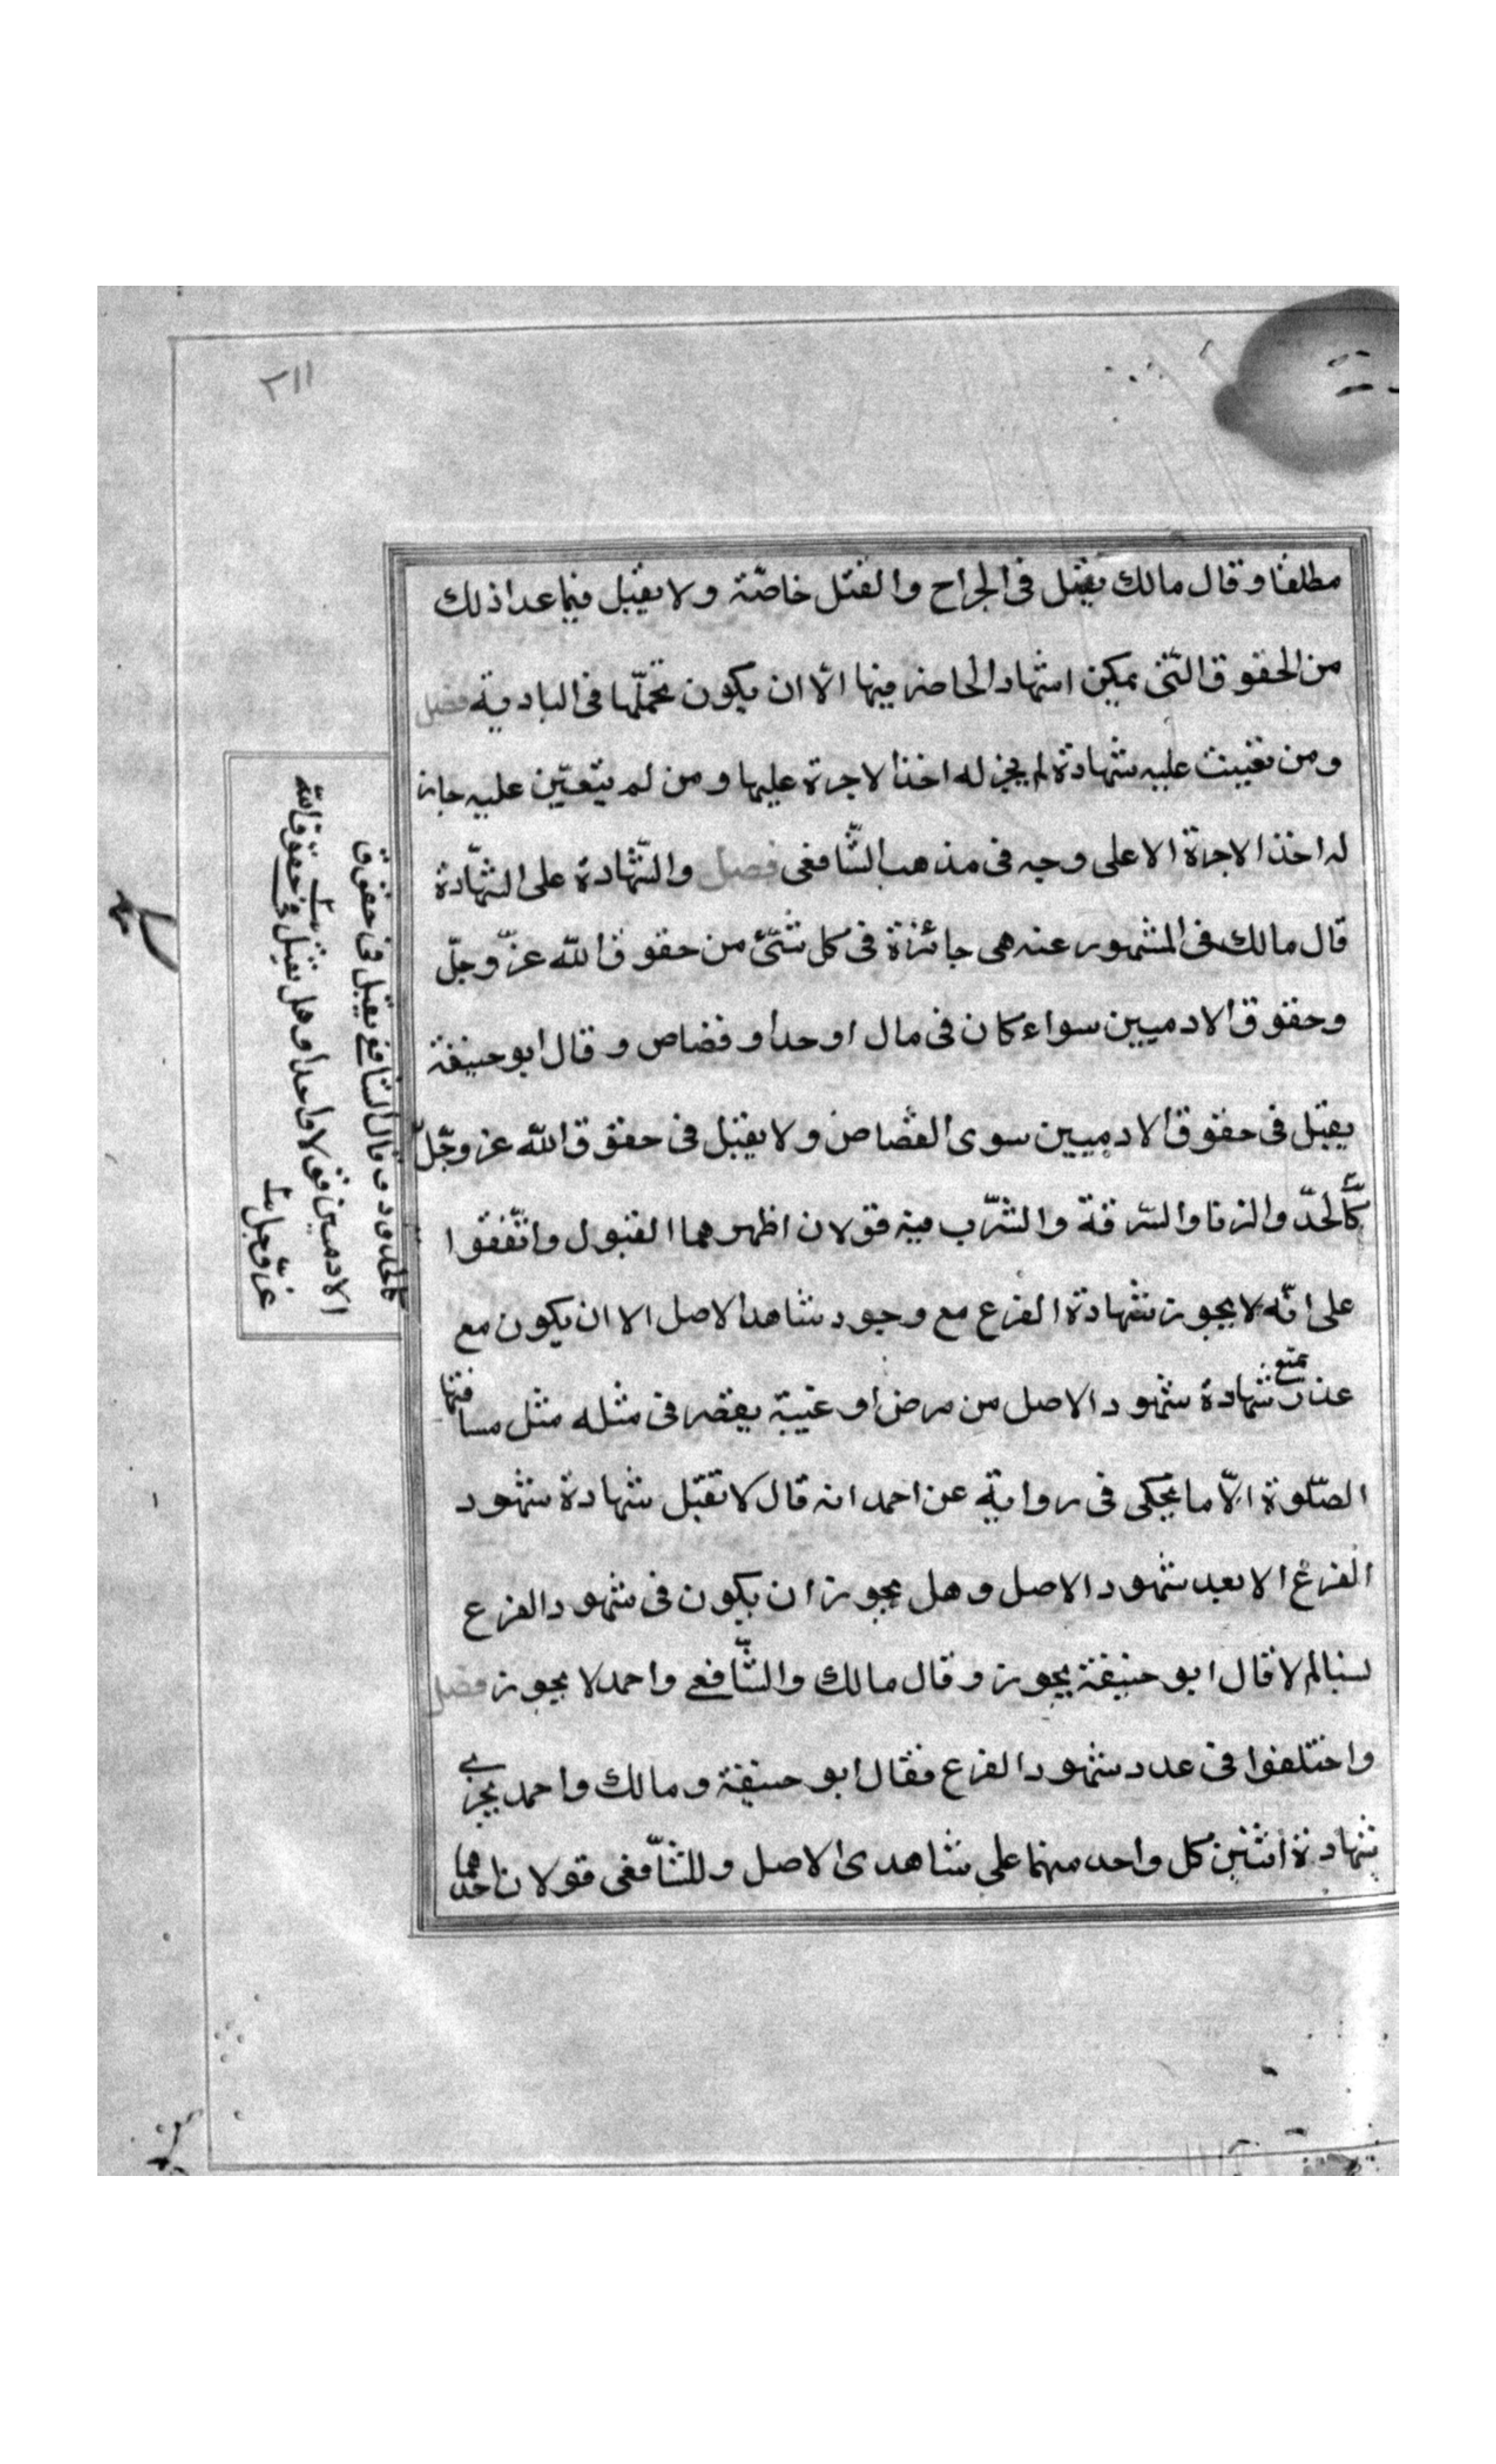 ٣١١
مطلقا وقال مالك يقبل فى الجراح والقتل خاصّة ولا يقبل فيما عدا ذلك
من الحقوق الّتى يمكن اشهاد الحاضر فيها الّا ان يكون تحمّلها فى البادية فصل
ومن تعيبت عليه شهادة لم يجز له اخذ الاجرة عليها ومن لم يتعيّن عليه جاز
له اخذ الاجرة الا على وجه فى مذهب الشّافعى فصل والشّهادة على الشّهادة
قال مالك فى المشهور عنه هى جائزة فى كل شئ من حقوق الله عزّ وجلّ
وحقوق الادميين سواء كان فى مال او حد او قصاص وقال ابو حنيفة
يقبل فى حقوق الادميين سوى القصاص ولا يقبل فى حقوق الله عز وجلّ
كالحدّ والزنا والسّرقة والشّرب فيه قولان اظهرهما القبول واتّفقوا
على انّه لا يجوز شهادة الفرع مع وجود شاهد الاصل الا ان يكون مع
عذر يمنع شهادة شهود الاصل من مرض او غيبة يقصر فى مثله مثل مسافتها
الصّلوة الّا ما يحكى فى رواية عن احمد انه قال لا تقبل شهادة شهود
الفرع الا بعد شهود الاصل وهل يجوز ان يكون فى شهود الفرع
نسا ام لا قال ابو حنيفة يجوز وقال مالك والشّافعى واحمد لا يجوز فصل
واختلفوا فى عدد شهود الفرع فقال ابو حنيفة ومالك واحمد يجزى
شهادة اثنين كل واحد منهما على شاهدى الاصل وللشّافعى قولان احدهما
كالحدود وقال الشافعى يقبل فى حقوق
الادميين قولا واحدا وهل يقبل فى حقوق الله
عزّ وجل